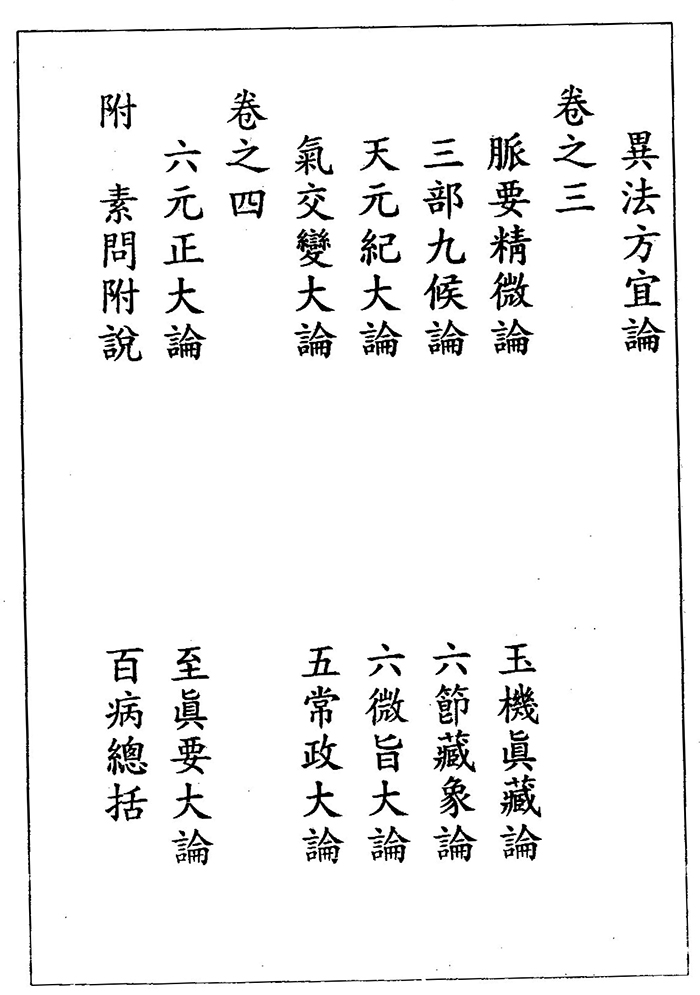 異法方宜論
卷之三
脈要精微論　玉機眞藏論
三部九候論　六節藏象論
天元紀大論　六微旨大論
氣交變大論　五常政大論
卷之四
六元正大論　至眞要大論
附　素問附說　百病總括